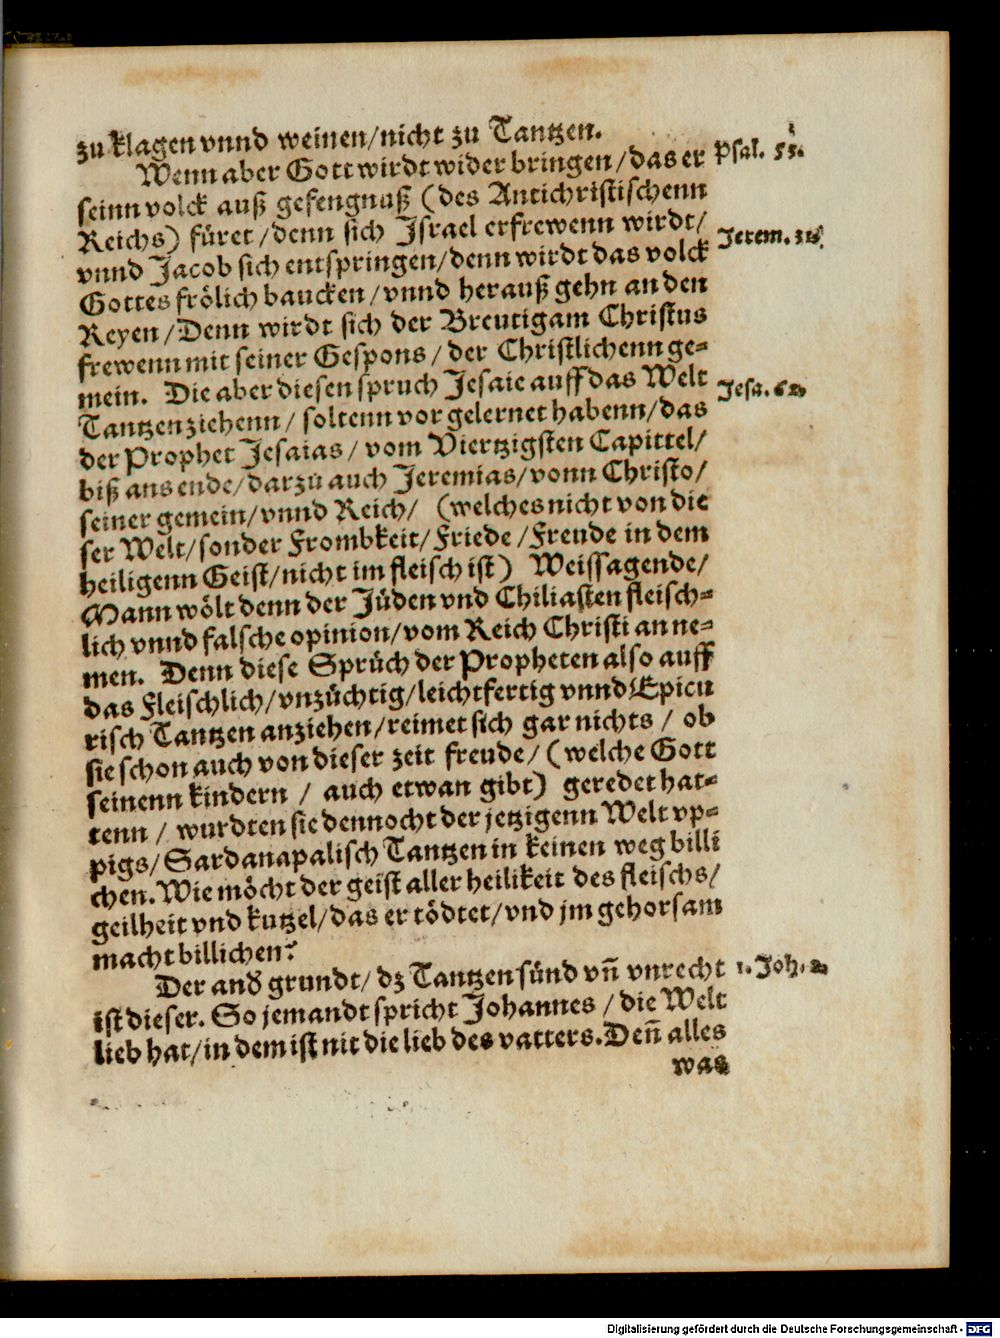 zu klagen vnnd weinen/nicht zu Tantzen.
Wenn aber Gott wirdt wider bringen/das er
Psal. 53.
seinn volck auß gefengnuß (des Antichristischenn
Reichs) füret/denn sich Israel erfrewenn wirdt/
Jerem. 31.
vnnd Jacob sich entspringen/denn wirdt das volck
Gottes frölich baucken/vnnd herauß gehn an den
Reyen/Denn wirdt sich der Breutigam Christus
frewenn mit seiner Gespons/der Christlichenn ge-
mein. Die aber diesen spruch Jesaie auff das Welt
Jesa. 62
Tantzen ziehenn/ soltenn vor gelernet habenn/das
der Prophet Jesaias/ vom Viertzigsten Capittel/
biß ans ende/darzu auch Jeremias/vonn Christo/
seiner gemein/vnnd Reich/ (welches nicht von die
ser Welt/sonder Frombkeit/Friede/Freude in dem
heiligenn Geist/nicht im fleisch ist) Weissagende/
Mann wölt denn der Jüden vnd Chiliasten fleisch-
lich vnnd falsche opinion/vom Reich Christi an ne-
men. Denn diese Sprüch der Propheten also auff
das Fleischlich/vnzüchtig/leichtfertig vnnd Epicu
risch Tantzen anziehen/reimet sich gar nichts/ ob
sie schon auch von dieser zeit freude/(welche Gott
seinenn kindern / auch etwan gibt) geredet hat-
tenn / wurdten sie dennocht der jetzigenn Welt vp-
pigs/Sardanapalisch Tantzen in keinen weg billi
chen. Wie möcht der geist aller heilikeit des fleischs/
geilheit vnd kutzel/das er tödtet/vnd jm gehorsam
macht billichen?
Der and grundt/dz Tantzen sünd vn̄ vnrecht
1. Joh. 2
ist dieser. So jemandt spricht Johannes/die Welt
lieb hat/in dem ist nit die lieb des vatters. Den̄ alles
was
Digitalisierung gefördert durch die Deutsche Forschungsgemeinschaft - DFG